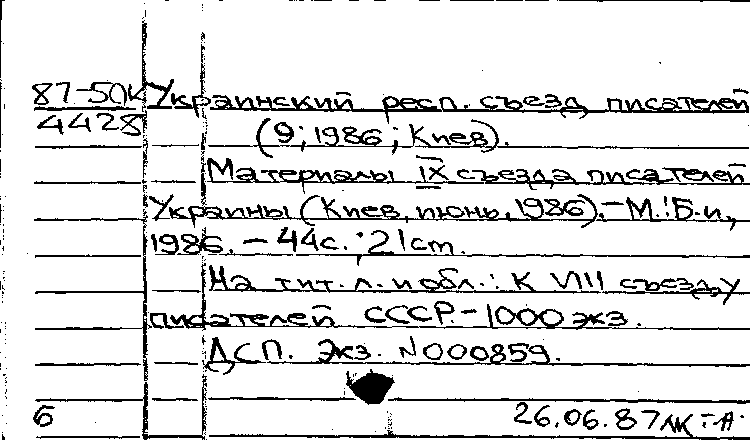 87-50К Украинский респ. съезд писателей
4428 (9; 1986; Киев).
Материалы IX съезда писателей
Украины (Киев, июнь, 1986). - М.: Б.и,
1986. - 44с.; 21 cm.
На тит. л. и обл.: К VIII съезду
писателей СССР. - 1000 экз.
ДСП. Экз. N000859.
б 26.06.87